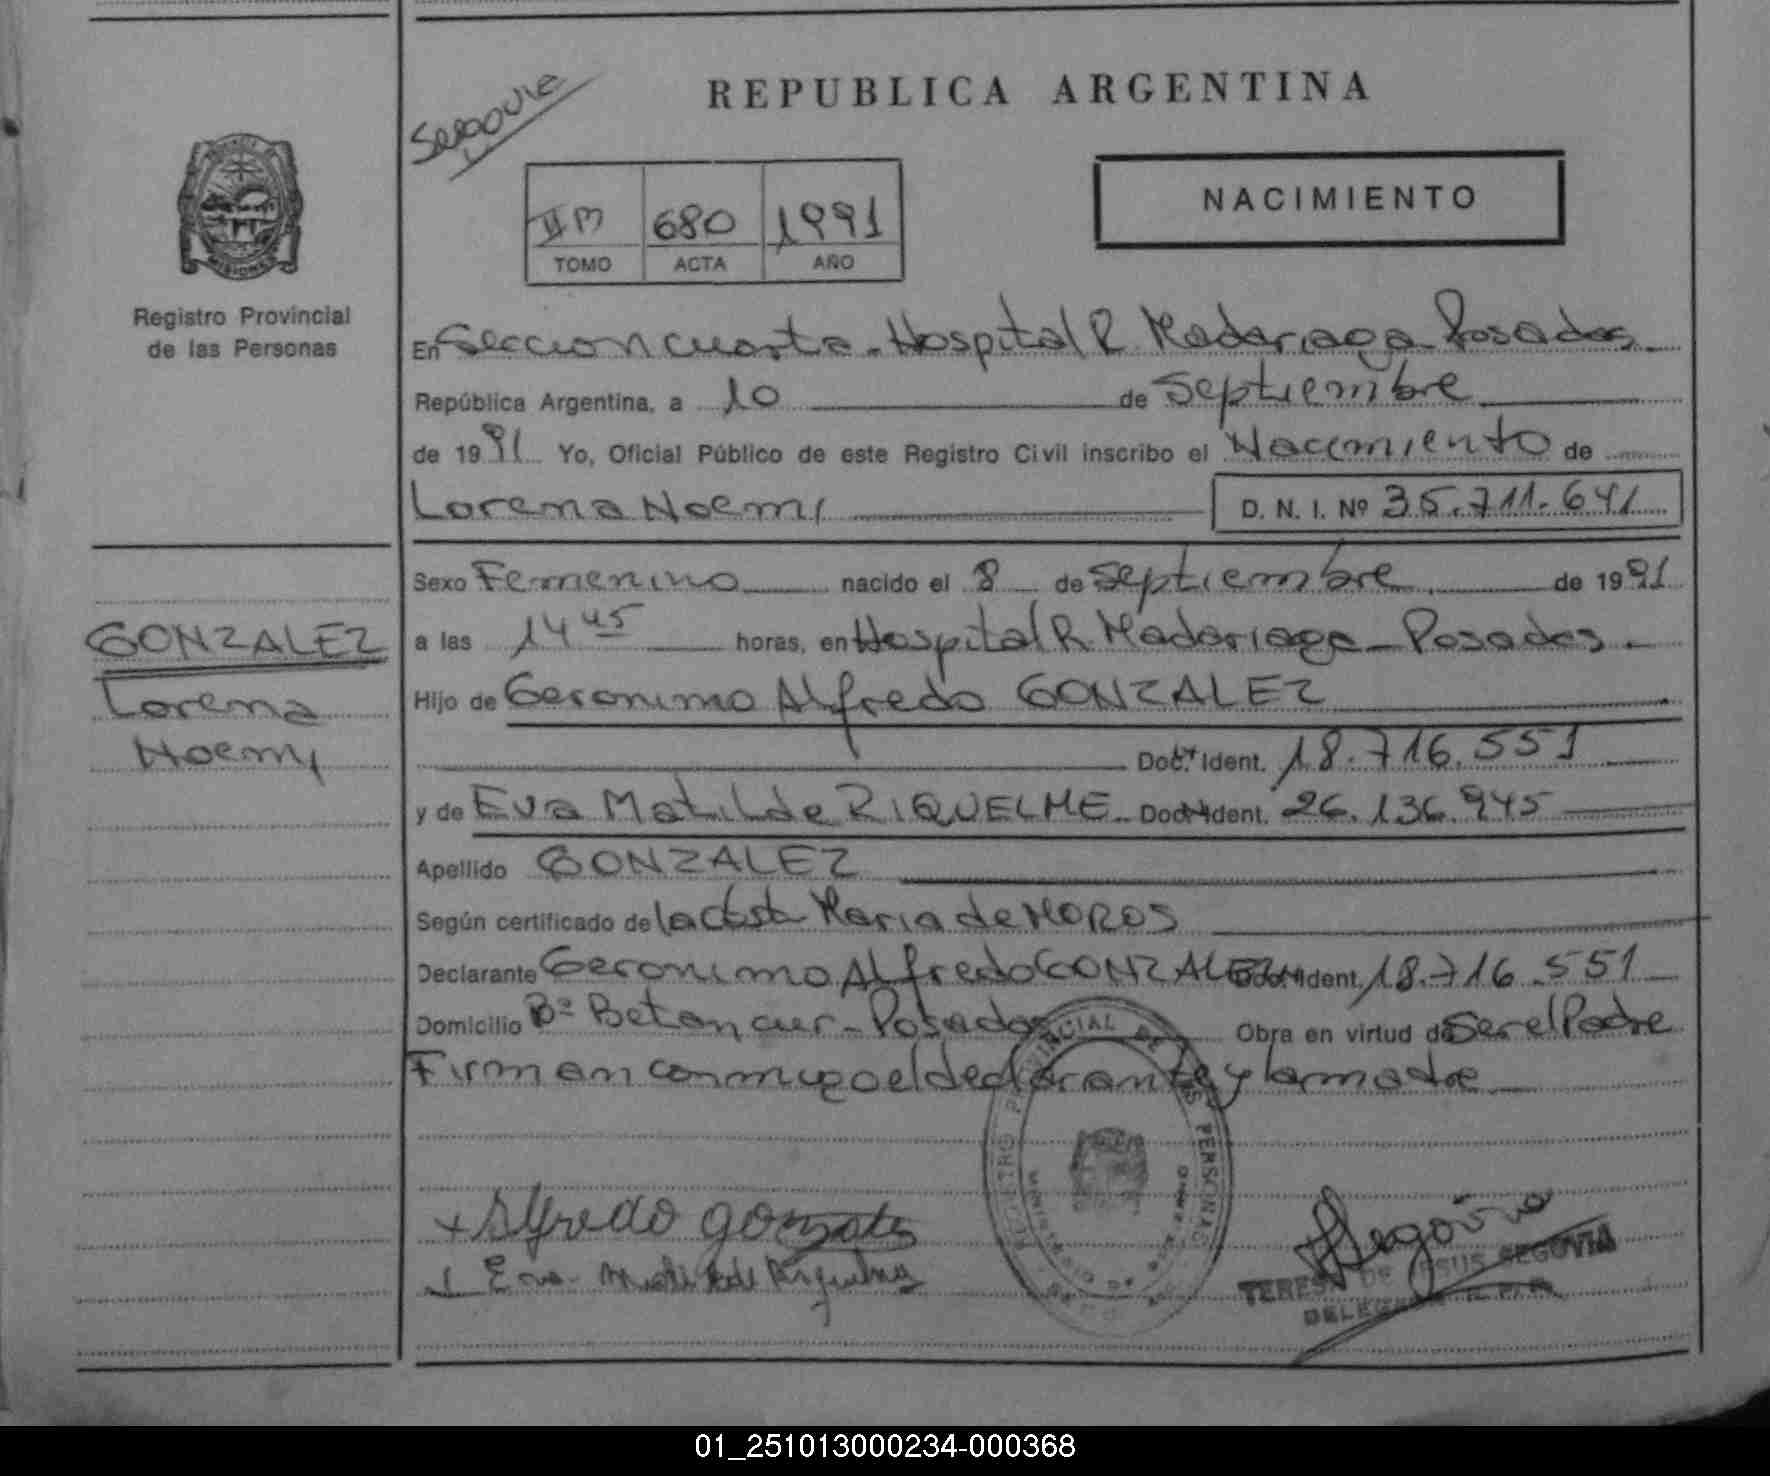 REPUBLICA ARGENTINA
NACIMIENTO
II M 680 1991
TOMO ACTA AÑO
MISIONES
Registro Provincial
de las Personas
En Seccion cuarta - Hospital R. Madariaga - Posadas
República Argentina, a 10 de Septiembre
de 1991 Yo, Oficial Público de este Registro Civil inscribo el Nacimiento de
Lorena Noemi D. N. I. Nº 35.711.641
Sexo Femenino nacido el 8 de Septiembre de 1991
GONZALEZ
Lorena
Noemi
a las 14 45 horas, en Hospital R. Madariaga - Posadas
Hijo de Geronimo Alfredo GONZALEZ
Doc. Ident. 18.716.551
y de Eva Matilde RIQUELME Doc. Ident. 26.136.945
Apellido GONZALEZ
Según certificado de la Obsta Maria de MOROS
Declarante Geronimo Alfredo GONZALEZ Doc. Ident. 18.716.551
Domicilio Bº Betancur - Posadas Obra en virtud de Ser el Padre
Firman conmigo el declarante y la madre
REGISTRO PROVINCIAL DE LAS PERSONAS
Alfredo gonzales
Eva Matilde Riquelme
Segovia
TERESA DE JESUS SEGOVIA
DELEGADA R. P. P.
01_251013000234-000368